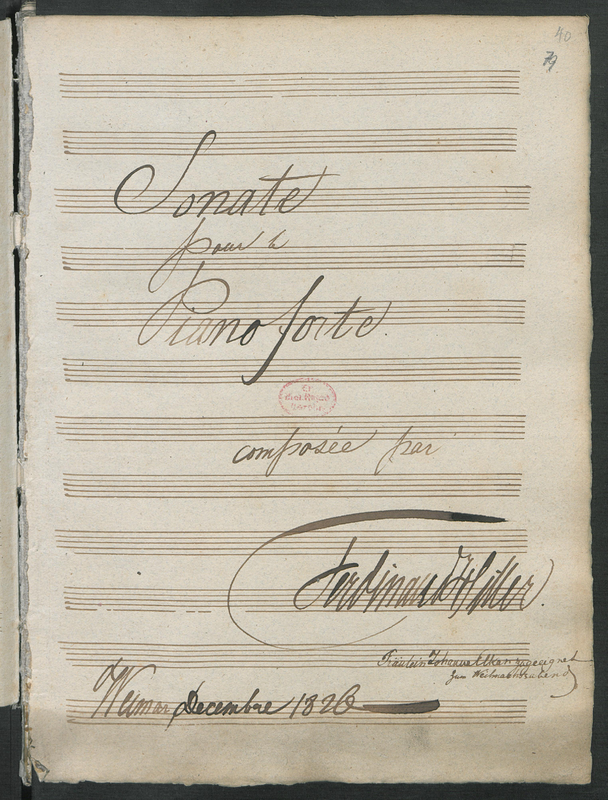 40
79
Sonate
pour le
Pianoforte.
composée par
Ferdinand Hiller.
Fräulein Johanna zugeeignet
zum Weihnachtsabend
Weimar Decembre 1826